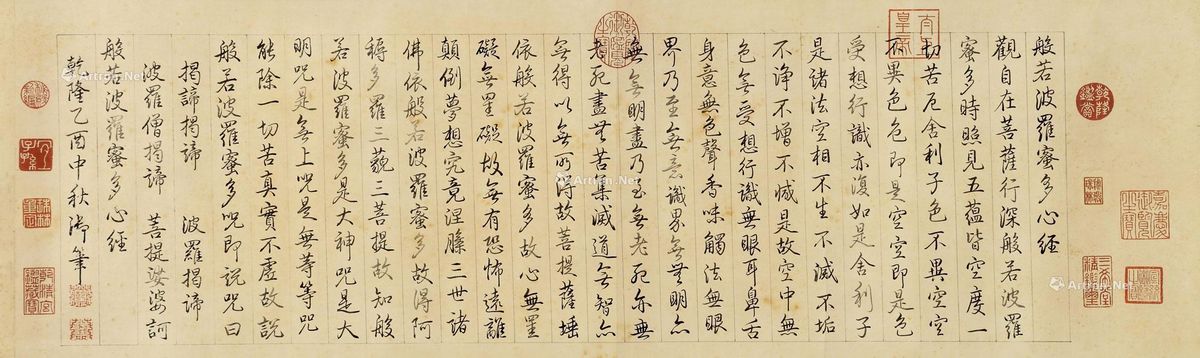 嘉慶御覽之寶
三希堂精鑑璽
乾隆鑑賞
般若波羅蜜多心經
觀自在菩薩行深般若波羅
蜜多時照見五蘊皆空度一
切苦厄舍利子色不異空空
不異色色即是空空即是色
受想行識亦復如是舍利子
是諸法空相不生不滅不垢
不淨不增不減是故空中無
色無受想行識無眼耳鼻舌
身意無色聲香味觸法無眼
界乃至無意識界無無明亦
無無明盡乃至無老死亦無
老死盡無苦集滅道無智亦
無得以無所得故菩提薩埵
依般若波羅蜜多故心無罣
礙無罣礙故無有恐怖遠離
顛倒夢想究竟涅槃三世諸
佛依般若波羅蜜多故得阿
耨多羅三藐三菩提故知般
若波羅蜜多是大神咒是大
明咒是無上咒是無等等咒
能除一切苦真實不虛故說
般若波羅蜜多咒即說咒曰
揭諦揭諦 波羅揭諦
波羅僧揭諦 菩提娑婆訶
般若波羅蜜多心經
乾隆乙酉中秋御筆
宜子孫
珠林重定
乾清宮鑑藏寶
Artron.Net